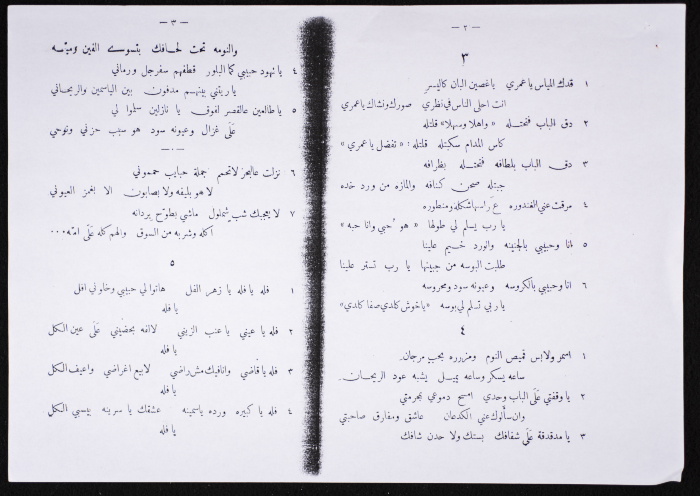 — ٢ —
٣
١ قدك المياس يا عمري يا غصين البان كاليسر
انت احلى الناس في نظري صورك ونشاك يا عمري
٢ دق الباب فتحتله «واهلا وسهلا» قلتله
كاس المدام سكبتله قلتله: «تفضل يا عمري»
٣ دق الباب بلطافه فتحتله بظرافه
جبتله صحن كنافه والمازه من ورد خده
٤ مرقت عني الغندوره ع راسها شكله ومنطوره
يا رب يسلم لي طولها «هو حبي وانا حبه»
٥ انا وحبيبي بالجنينه والورد خسيم علينا
طلبت البوسه من جبينها يا رب تستر علينا
٦ انا وحبيبي بالكروسه وعيونه سود ومحروسه
يا ربي تسلم لي بوسه «يا خوش كلدي صفا كلدي»
٤
١ اسمر ولابس قميص النوم ومزرره بحب مرجان
ساعه يسكر وساعه يميل يشبه عود الريحان
٢ يا وقفتي على الباب وحدي امسح دموعي بمحرمتي
وان سألوك عني الكدعان عاشق ومفارق صاحبتي
٣ يا مدقدقة على شفافك بستك ولا حدن شافك
— ٣ —
والنومه تحت لحافك بتسوى الفين وميّسه
٤ يا نهود حبيبي كما البلور قطفهم سفرجل ورماني
يا ريتني بينهم مدفون بين الياسمين والريحاني
٥ يا طالعين عالقصر لفوق يا نازلين سلموا لي
على غزال وعيونه سود هو سبب حزني ونوحي
— ٠ —
٦ نزلت عالبحر لاتحمم جملة حبايب حمموني
لا هو بليفه ولا بصابون الا بغمز العيوني
٧ لا يعجبك شب شملول ماشي بطوّح بردانه
اكله وشربه من السوق والهم كله على امّه...
٥
١ فله يا فله يا زهر الفل هاتوا لي حبيبي وخلوني افل
يا فله
٢ فله يا عيني يا عنب الزيني لالفه بحضيني على عين الكل
يا فله
٣ فله يا قاضي وانا فيك مش راضي لابيع اغراضي واعيف الكل
يا فله
٤ فله يا كبيره ورده ياسمينه عشقك يا سرينه بيسبي الكل
يا فله